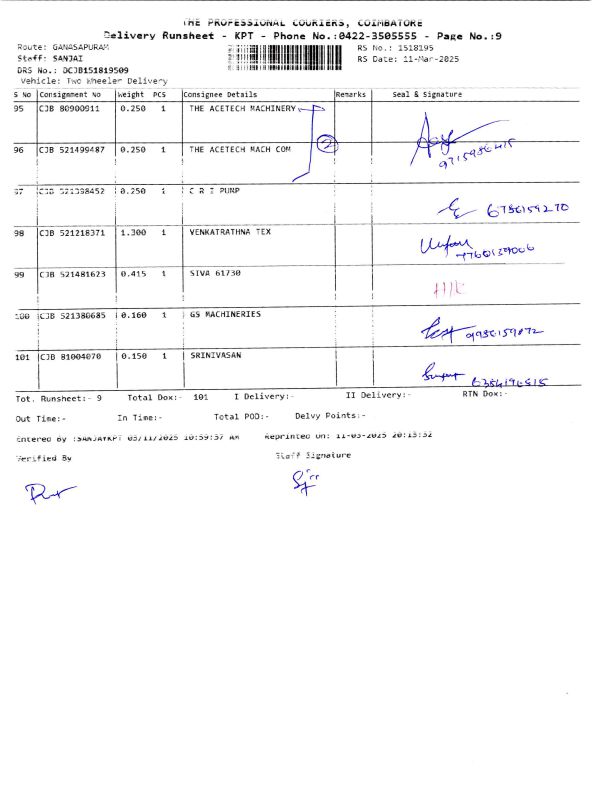 THE PROFESSIONAL COURIERS, COIMBATORE
Delivery Runsheet - KPT - Phone No.:0422-3505555 - Page No.:9
Route: GANASAPURAM RS No.: 1518195
Staff: SANJAI RS Date: 11-Mar-2025
DRS No.: DCJB151819509
Vehicle: Two Wheeler Delivery
S No Consignment No Weight PCS Consignee Details Remarks Seal & Signature
95 CJB 80900911 0.250 1 THE ACETECH MACHINERY
2
96 CJB 521499487 0.250 1 THE ACETECH MACH COM
97 CJB 521398452 0.250 1 C R I PUMP
98 CJB 521218371 1.300 1 VENKATRATHNA TEX
99 CJB 521481623 0.415 1 SIVA 61730
100 CJB 521380685 0.160 1 GS MACHINERIES
101 CJB 81004070 0.150 1 SRINIVASAN
Tot. Runsheet:- 9 Total Dox:- 101 I Delivery:- II Delivery:- RTN Dox:-
Out Time:- In Time:- Total POD:- Delvy Points:-
Entered By :SANJAYKPT 03/11/2025 10:59:57 AM Reprinted On: 11-03-2025 20:15:52
Verified By Staff Signature